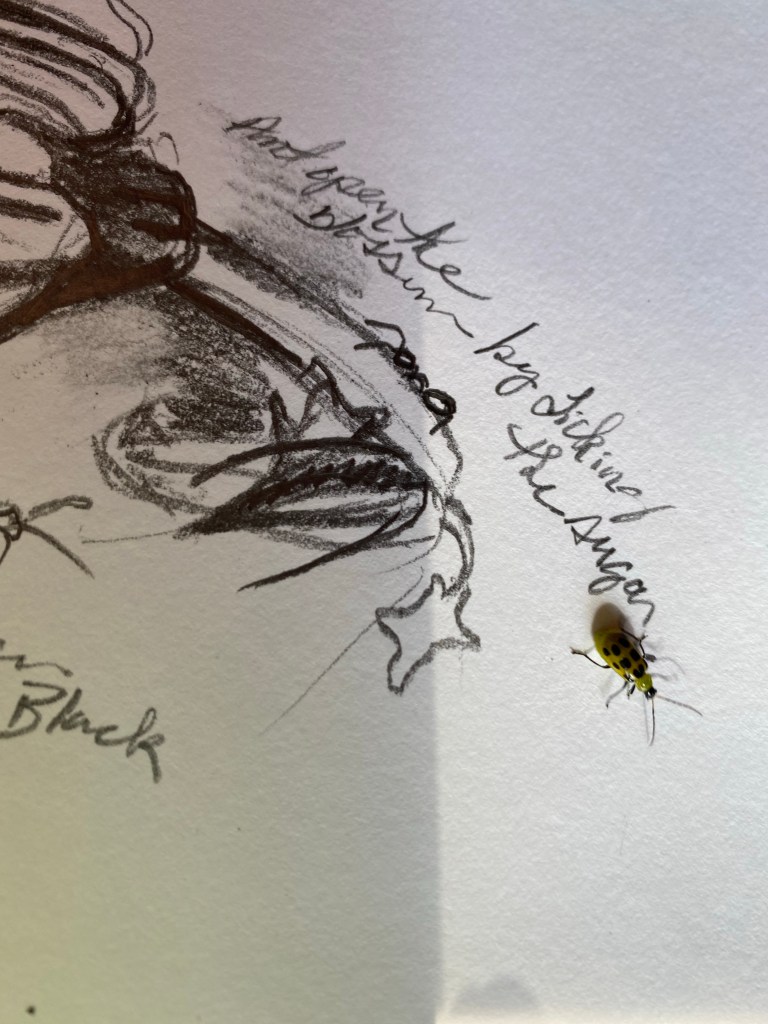 And open the
Blossum
by Licking
the sugar
Black